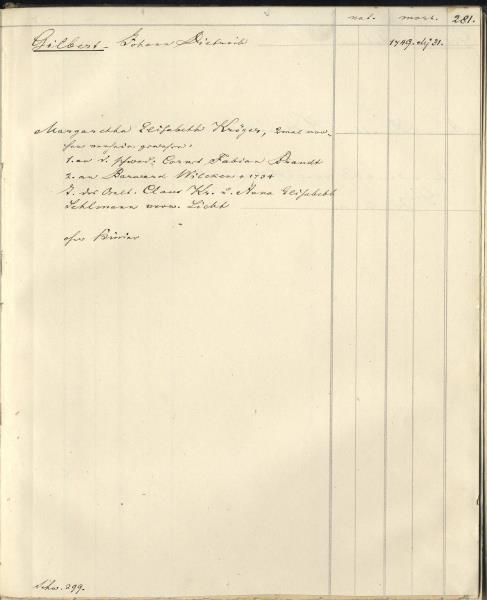 nat. mort. 281.
Gilbert - Johann Dietrich 1749. Mz 31.
Margaretha Elisabeth Krüger, 2mal vor-
her verheir. gewesen:
1. an d. schwed. Cornet Fabian Brandt
2. an Barward Wilcken + 1734
T. des Aelt. Claus Kr. u. Anna Elisabeth
Sehlmann verw. Licht
ohne Kinder
Schw. 299.